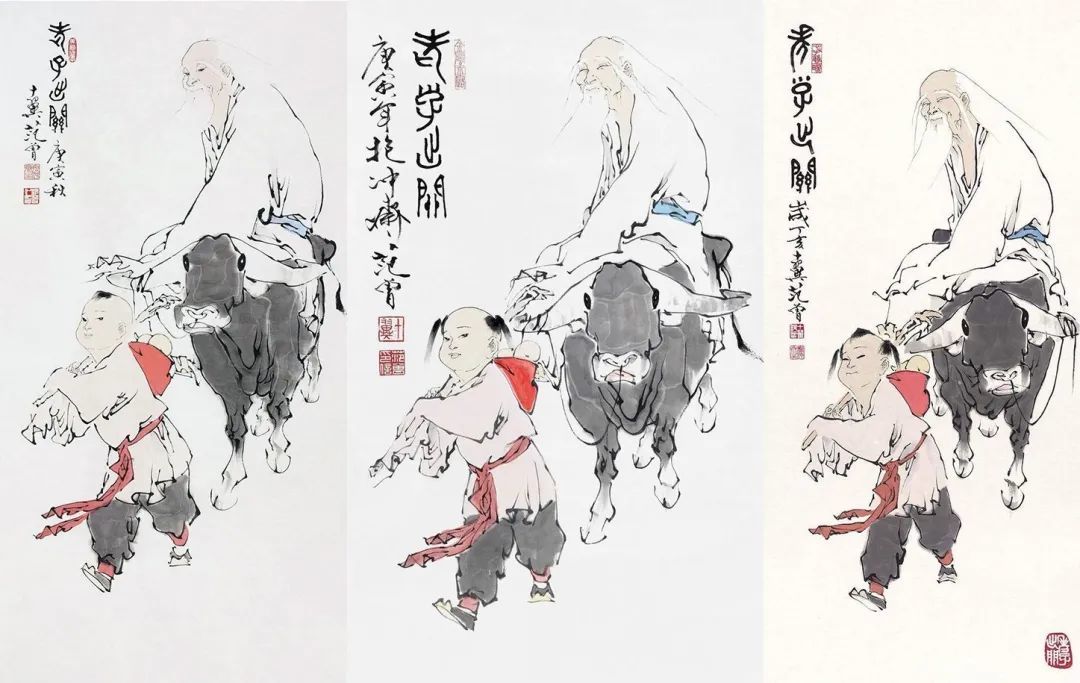 老子出關
庚寅秋
十翼范曾
老子出關
庚寅年抱冲齋范曾
十翼
老子出關
歲丁亥十翼范曾